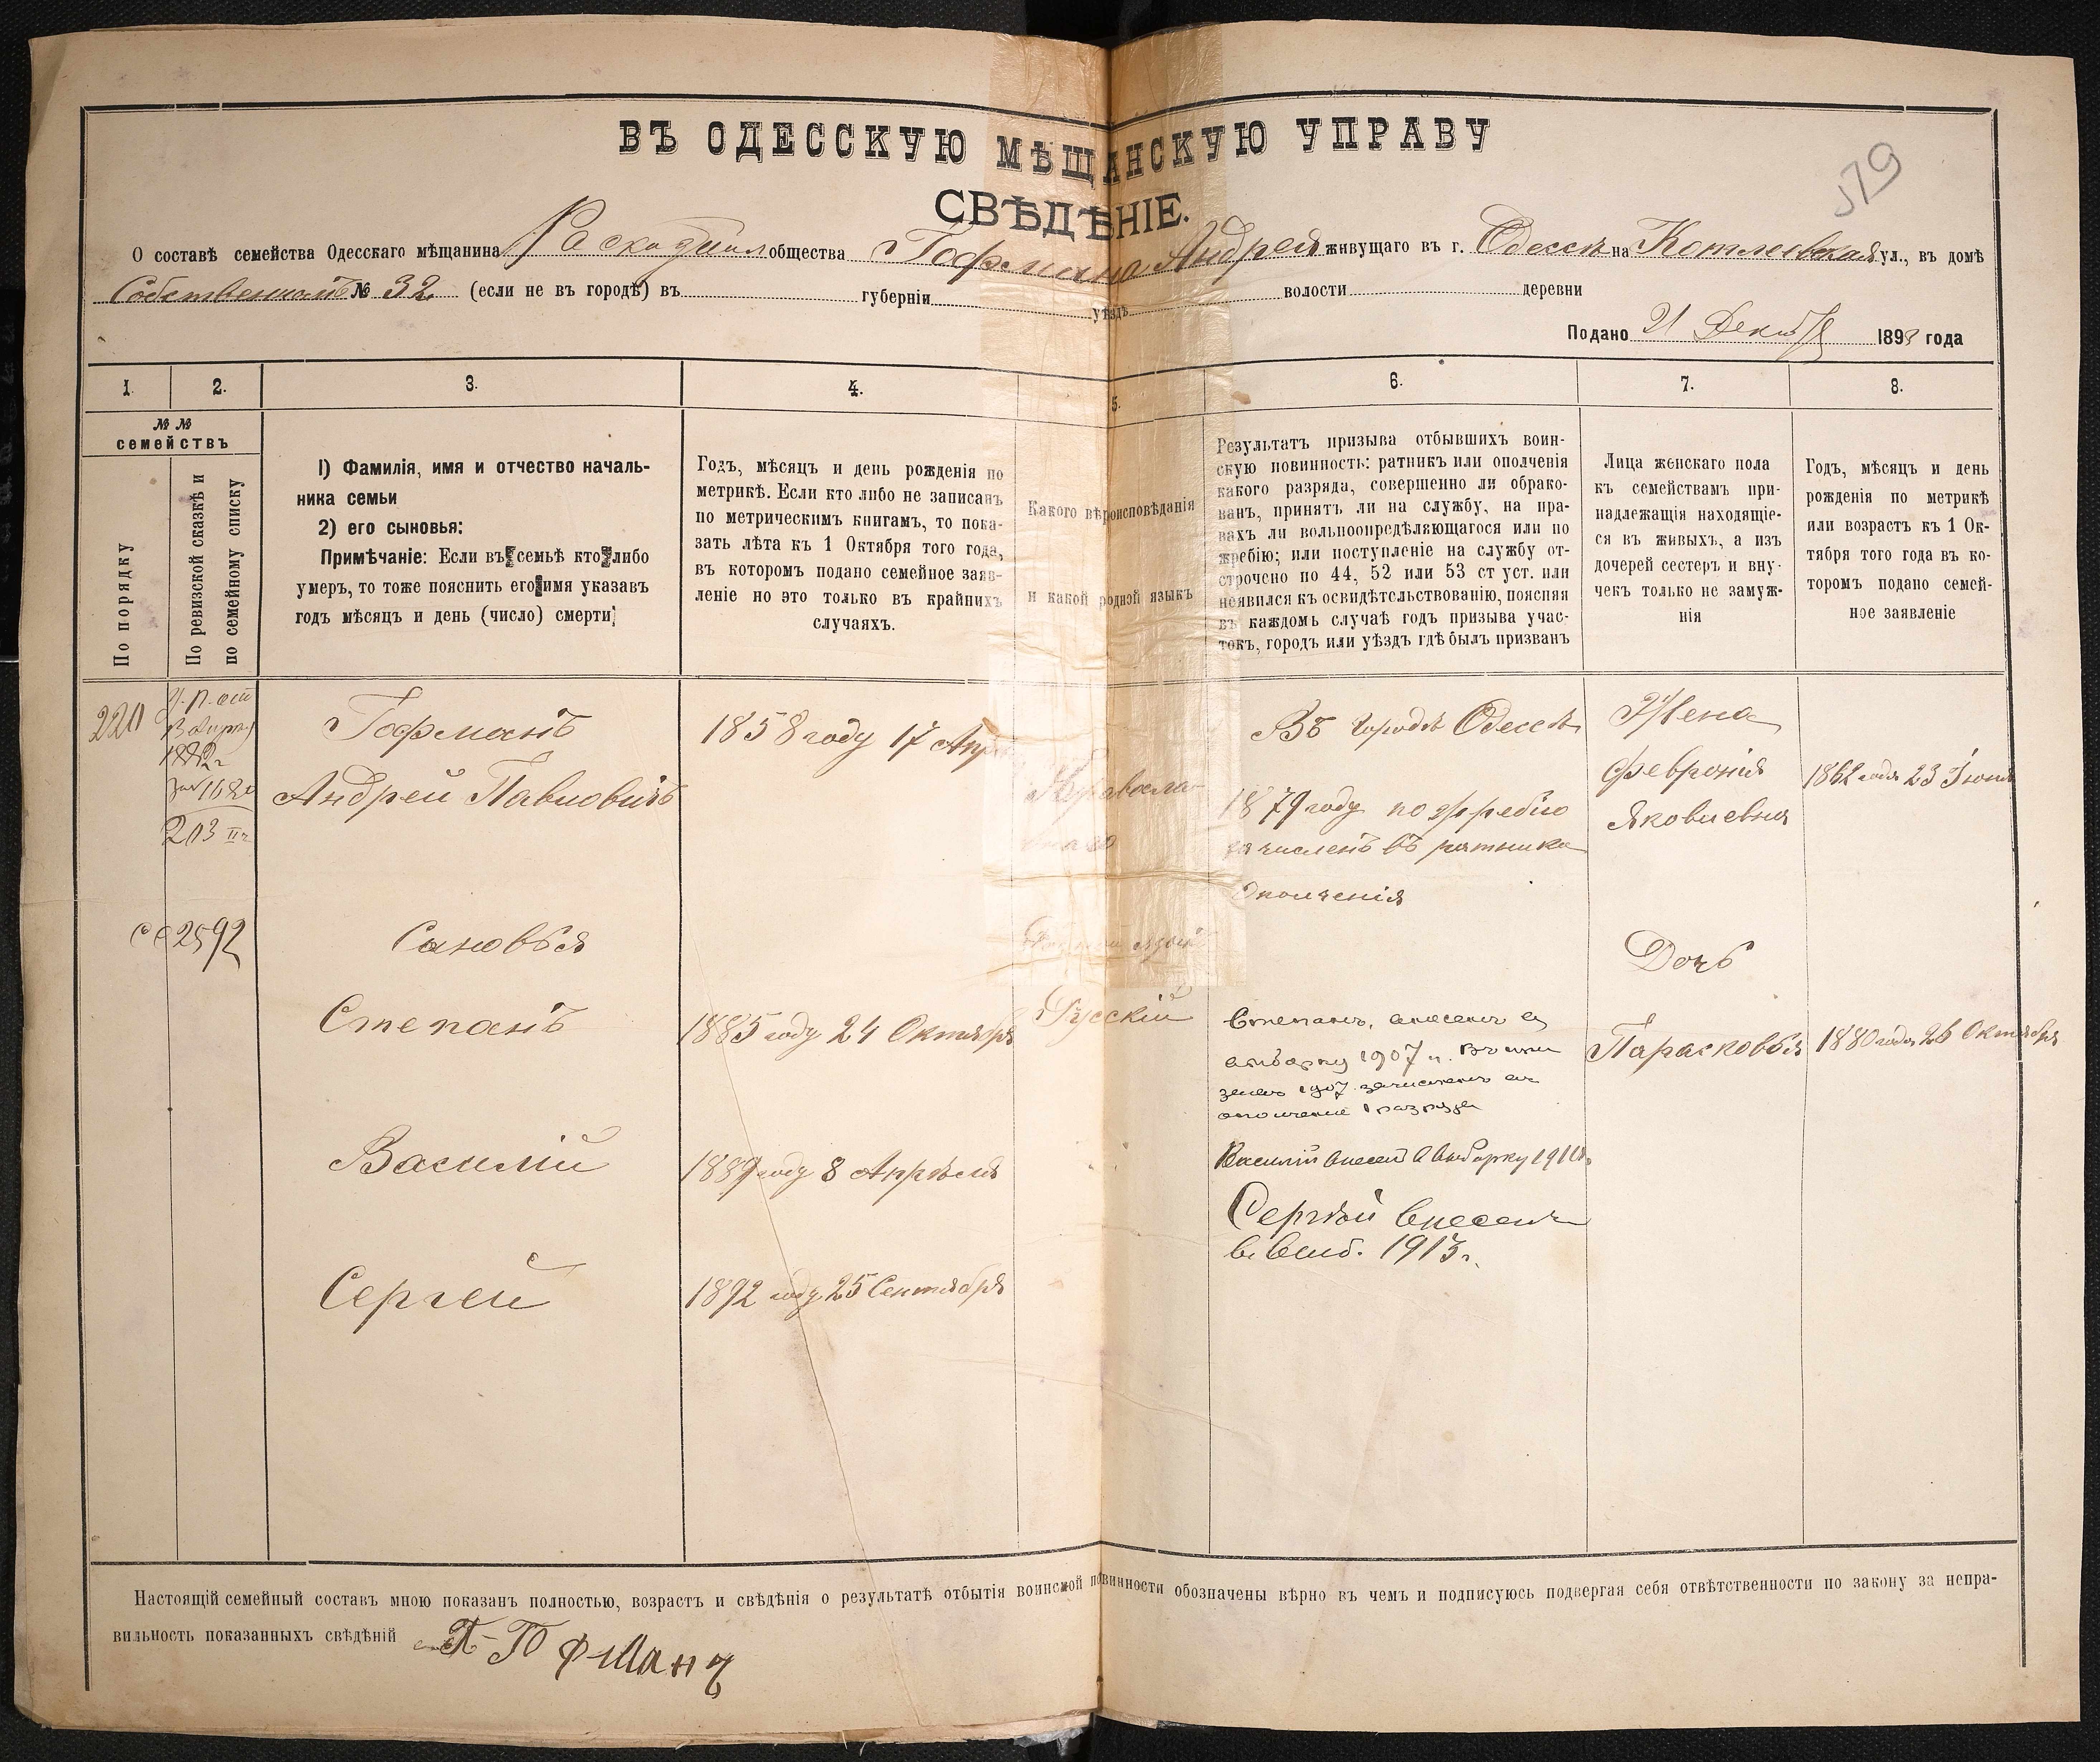 ВЪ ОДЕССКУЮ МѢЩАНСКУЮ УПРАВУ
СВѢДѢНІЕ.
579
О составѣ семейства Одесскаго мѣщанина общества Гофмана Андрея живущаго въ г. Одессѣ на ул., въ домѣ
Собственномъ № 32 (если не въ городѣ) въ губерніи уѣздъ волости деревни
Подано 21 Декабр 1898 года
1. 2. 3. 4. 5. 6. 7. 8.
№ №
семействъ
По порядку
По ревизской сказкѣ и
по семейному списку
1) Фамилія, имя и отчество началь-
ника семьи
2) его сыновья:
Примѣчаніе: Если въ семьѣ кто либо
умеръ, то тоже пояснить его имя указавъ
годъ мѣсяцъ и день (число) смерти
Годъ, мѣсяцъ и день рожденія по
метрикѣ. Если кто либо не записанъ
по метрическимъ книгамъ, то пока-
зать лѣта къ 1 Октября того года,
въ которомъ подано семейное заяв-
леніе но это только въ крайнихъ
случаяхъ.
Какого вѣроисповѣданія
и какой родной языкъ
Результатъ призыва отбывшихъ воин-
скую повинность: ратникъ или ополченія
какого разряда, совершенно ли обрако-
ванъ, принятъ ли на службу, на пра-
вахъ ли вольноопредѣляющагося или по
жребію; или поступленіе на службу от-
строчено по 44, 52 или 53 ст уст. или
неявился къ освидѣтсльствованію, поясняя
въ каждомъ случаѣ годъ призыва учас-
токъ, городъ или уѣздъ гдѣ былъ призванъ
Лица женскаго пола
къ семействамъ при-
надлежащія находящіе-
ся въ живыхъ, а изъ
дочерей сестеръ и вну-
чекъ только не замуж-
нія
Годъ, мѣсяцъ и день
рожденія по метрикѣ
или возрастъ къ 1 Ок-
тября того года въ ко-
торомъ подано семей-
ное заявленіе
220
1882
203
Гофманъ
Андрей Павловичъ
1858 году 17 Апр
Правосла-
Въ городѣ Одессѣ
1879 году по жребію
зачисленъ въ ратника
Ополченія
Жена
Февронія
Яковлевна
1862 года 23 Іюня
2592
Сыновья
Родной языкъ
Русскій
Дочь
Степанъ
1885 году 24 Октября
Степанъ, внесенъ въ
выборку 1907 г.
1907 зачисленъ въ
ополченіе 1 разряда
Парасковья
1880 года 26 Октября
Василій
1889 году 8 Апрѣля
Василій внесен в выборку 1910
Сергѣй внесенъ
в выб. 1913 г.
Сергей
1892 году 25 Сентября
Настоящій семейный составъ мною показанъ полностью, возрастъ и свѣдѣнія о результатѣ отбытія воинской повинности обозначены вѣрно въ чемъ и подписуюсь подвергая себя отвѣтственности по закону за непра-
вильность показанныхъ свѣдѣній